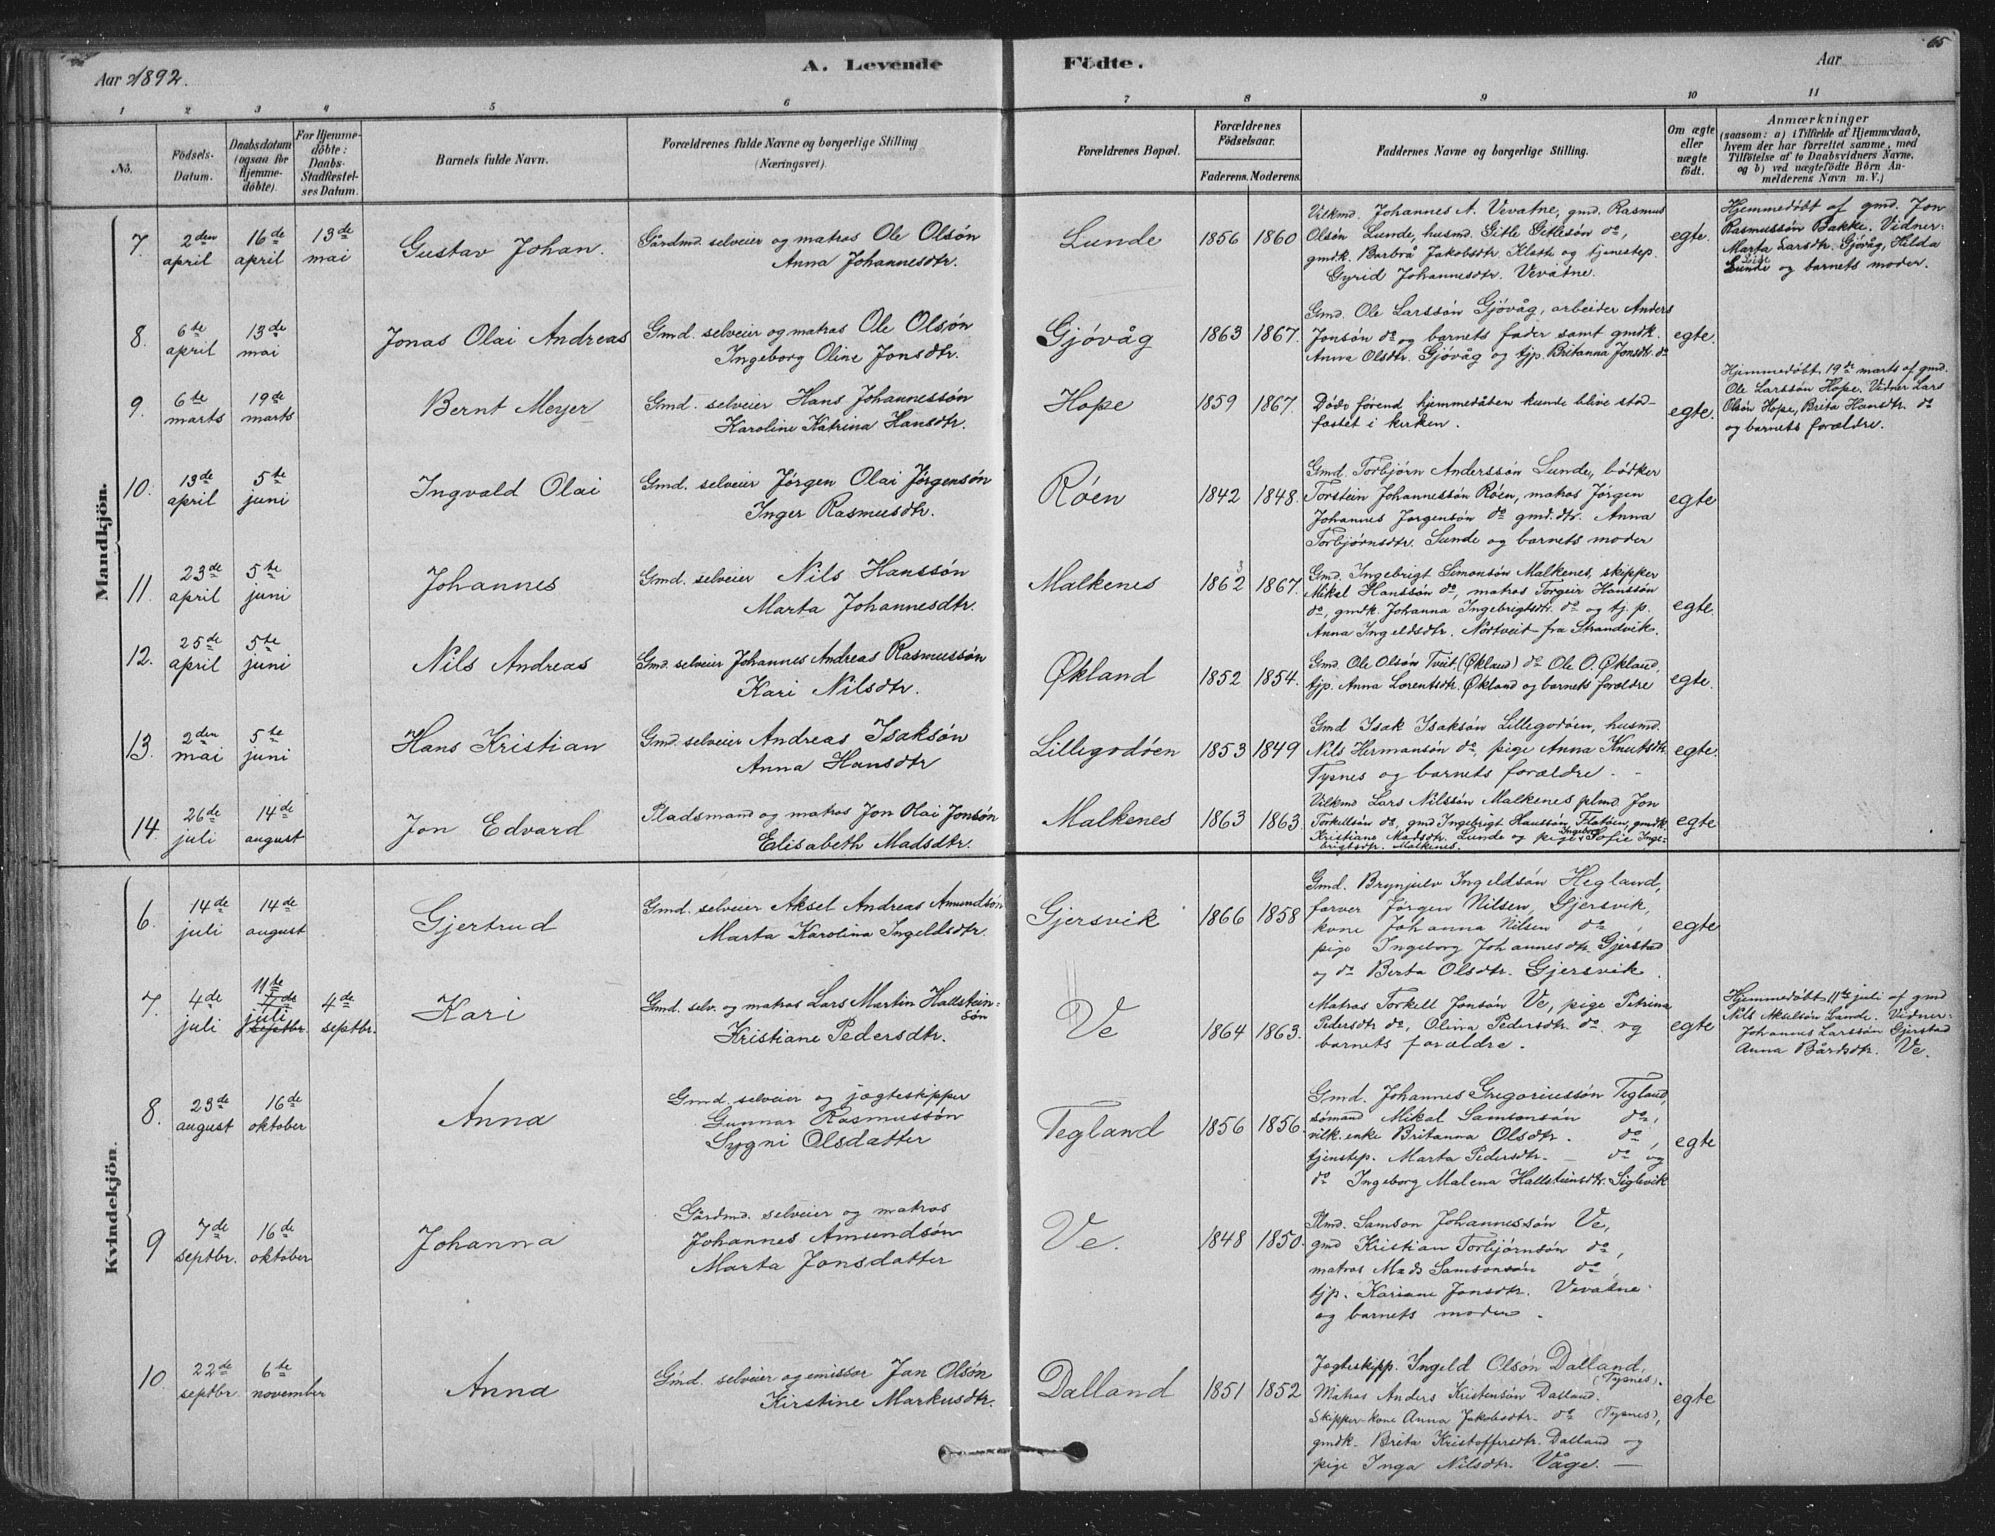 Aar 1892.
A. Levende Födte.
Aar
65
1 2 3 4 5 6 7 8 9 10 11
No.
Födsels-Datum.
Daabsdatum (ogsaa for Hjemme-döbte).
For Hjemme-döbte: Daabs-Stadfæstel-ses Datum.
Barnets fulde Navn.
Forældrenes fulde Navne og borgerlige Stilling (Næringsvei).
Forældrenes Bopæl.
Forældrenes Födselsaar.
Faderens. Moderens.
Faddernes Navne og borgerlige Stilling.
Om ægte eller uægte födt.
Anmærkninger
(saasom: a) i Tilfælde af Hjemmedaab, hvem der har forrettet samme, med Tilföielse af to Daabsvidners Navne, og b) ved uægtefödte Börn An-melderens Navn m. V.)
Mandkjön.
7. 2den april 16de april 13de mai Gustav Johan.
Gårdmd. selveier og matros Ole Olsón
Anna Johannesdtr.
Lunde 1856 1860
Vilkmd. Johannes A. Vevatne, gmd. Rasmus
Olsón Lunde, husmd. Gitle Gitlesón do,
gmdk. Barbrå Jakobsdtr. Klath og tjenestep.
Gyrid Johannesdtr. Vevatne.
egte.
Hjemmedóbt af gmd. Jon
Rasmussón Bakke. Vidner
Marta Larsdtr. Gjóvåg, Hilda
Lunde og barnets moder.
8. 6te april 13de mai Jonas Olai Andreas
Gmd. selveier og matros Ole Olsón
Ingeborg Oline Jonsdtr.
Gjóvåg 1863 1867.
Gmd. Ole Larssón Gjóvåg, arbeider Anders
Jonsón do og barnets fader samt gmdk.
Anna Olsdtr. Gjóvåg og tjp. Britanna Jonsdtr. do
egte.
9. 6te marts 19de marts Bernt Meyer
Gmd. selveier Hans Johannessón
Karoline Katrina Hansdtr.
Hope 1859 1867.
Dóde fórend hjemmedåben kunde blive stad-
fæstet i kirken.
egte.
Hjemmedóbt 19de marts af gmd.
Ole Larssón Hope. Vidner Lars
Olsón Hope, Brita Hansdtr. do
og barnets forældre.
10. 13de april 5te juni Ingvald Olai
Gmd. selveier Jórgen Olai Jórgensón
Inger Rasmusdtr.
Róen 1842 1848.
Gmd. Torbjórn Anderssón Lunde, bódker
Torstein Johannessón Róen, matros Jórgen
Johannes Jórgensón do gmd.dtr. Anna
Torbjórnsdtr. Lunde og barnets moder
egte
11. 23de april 5te juni Johannes
Gmd. selveier Nils Hanssón
Marta Johannesdtr.
Malkenes 1862 3 1867.
Gmd. Ingebrigt Simonsón Malkenes, skipper
Mikal Hanssón do, matros Torgeir Hanssón
do, gmdk. Johanna Ingebrigtsdtr. do og tj. p.
Anna Ingeldsdtr. Nórtveit fra Strandvik.
egte.
12. 25de april 5te juni Nils Andreas
Gmd. selveier Johannes Andreas Rasmussón
Kari Nilsdtr.
Økland 1852 1854.
Gmd. Ole Olsón Tveit (Økland) do Ole O. Økland,
tjp. Anna Lorentsdtr. Økland og barnets forældre
egte.
13. 2den mai 5te juni Hans Kristian
Gmd. selveier Andreas Isaksón
Anna Hansdtr
Lillegodóen 1853 1849
Gmd Isak Isaksón Lillegodóen, husmd.
Nils Hermansón do, pige Anna Knutsdtr.
Tysnes og barnets forældre.
egte.
14. 26de juli 14de august Jon Edvard
Pladsmand og matros Jon Olai Jonsón
Elisabeth Madsdtr.
Malkenes 1863 1863
Vilkmd Lars Nilssón Malkenes plmd Jon
Torkellsón do, gmd Ingebrigt Hanssón Flateen, gmdk.
Kristiane Madsdtr. Lunde og pige Ingeborg Sofie Inge-
brigtsdtr. Malkenes.
egte
Kvindekjön.
6. 14de juli 14de august Gjertrud
Gmd. selveier Aksel Andreas Amundsón
Marta Karolina Ingeldsdtr.
Gjersvik 1866 1858
Gmd. Brynjulv Ingeldsón Hegland,
farver Jórgen Nilsen, Gjersvik,
kone Johanna Nilsen do,
pige Ingeborg Johannesdtr. Gjerstad
og do Berta Olsdtr. Gjersvik.
egte
7. 4de juli 11te juli 4de septbr. Kari
Gmd. selv. og matros Lars Martin Hallstein-
són
Kristiane Pedersdtr.
Ve 1864 1863.
Matros Torkell Jonsón Ve, pige Petrina
Pedersdtr do, Olina Pedersdtr. do og
barnets forældre.
egte
Hjemmedóbt 11te juli af gmd
Nils Akselsón Lande. Vidner
Johannes Larssón Gjerstad
Anna Bårdsdtr. Ve.
8. 23de august 16de oktober Anna
Gmd. selveier og jægteskipper
Gunnar Rasmussón
Sygni Olsdatter
Tegland 1856 1856.
Gmd. Johannes Gregoriussón Tegland
sómand Mikal Samsonsón do,
vilk. enke Britanna Olsdtr. do,
tjenstep. Marta Pedersdtr. do og
do Ingeborg Malena Hallsteinsdtr. Siglevik
egte
9 7de septbr. 16de oktober Johanna
Gårdmd. selveier og matros
Johannes Amundsón
Marta Jonsdatter
Ve. 1848 1850.
Plmd. Samson Johannessón Ve,
gmd Kristian Torbjórnsón do,
matros Mads Samsonsón do
tjp. Kariane Jonsdtr. Vevatne
og barnets moder.
10 22de septbr. 6te november Anna
Gmd. selveier og emissær Jan Olsón
Kirstine Markusdtr.
Dalland 1851 1852
Jægteskipp. Ingeld Olsón Dalland,
(Tysnes).
Matros Anders Kristensón Dalland.
Skipper-kone Anna Jakobsdtr. do (Tysnes),
gmdk. Brita Kristoffersdtr. Dalland og
pige Inga Nilsdtr. Våge.
egte